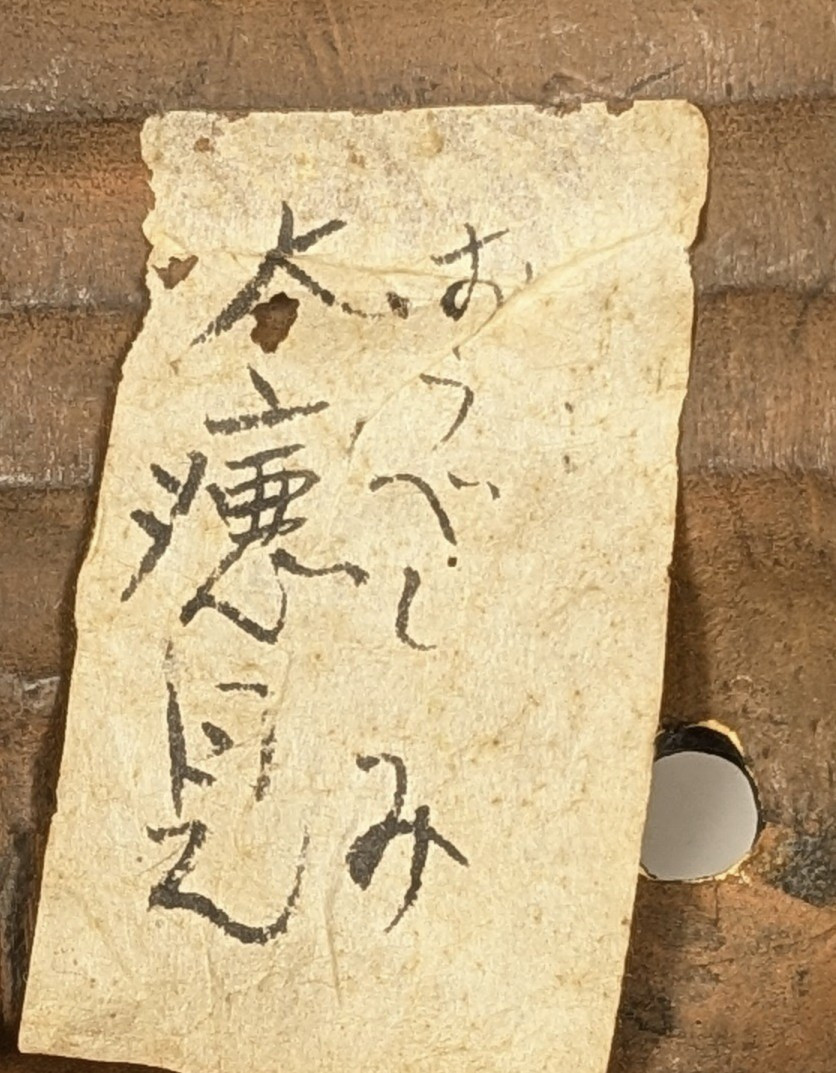 おうべしみ
大癋見